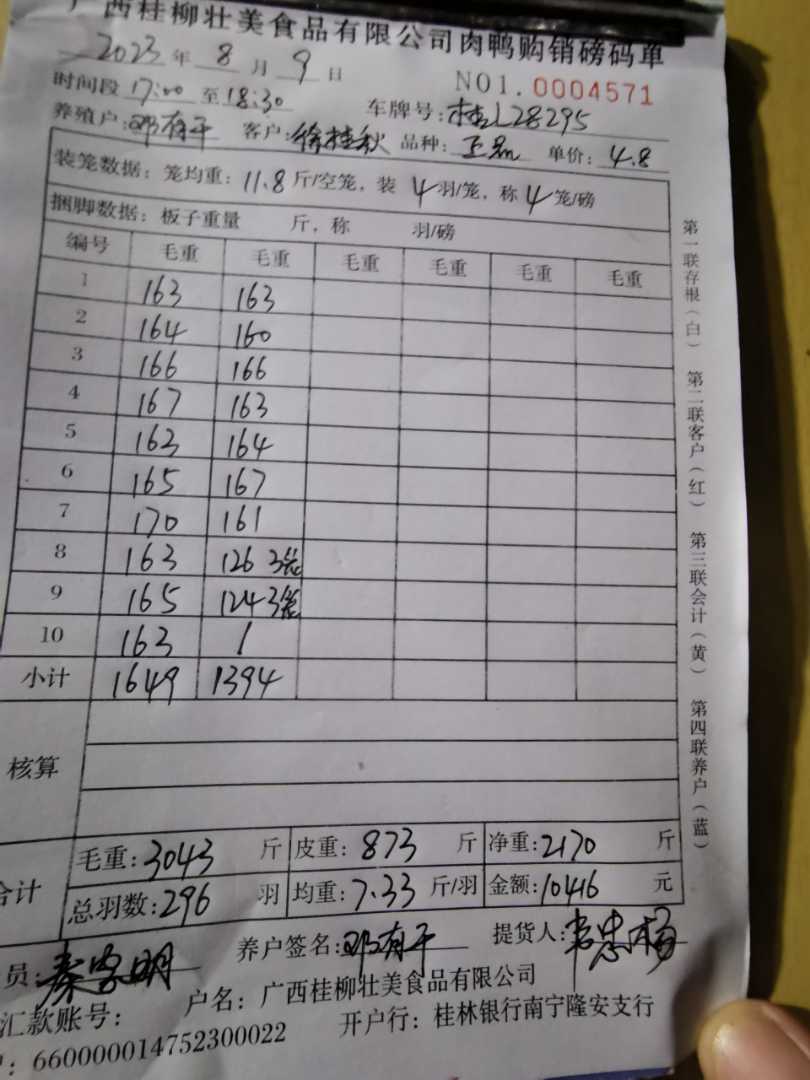 广西桂柳壮美食品有限公司肉鸭购销磅码单
2023年 8 月 9 日 NO1.0004571
时间段 17:00 至 18:30 车牌号: 桂L28295
养殖户: 邓有干 客户: 徐桂秋 品种: 单价: 4.8
装笼数据: 笼均重: 11.8 斤/空笼, 装 4 羽/笼, 称 4 笼/磅
捆脚数据: 板子重量 斤, 称 羽/磅
编号 毛重 毛重 毛重 毛重 毛重 毛重
1 163 163
2 164 160
3 166 166
4 167 163
5 163 164
6 165 167
7 170 161
8 163 126 3笼
9 165 124 3笼
10 163 /
小计 1649 1394
核算
合计 毛重: 3043 斤 皮重: 873 斤 净重: 2170 斤
总羽数: 296 羽 均重: 7.33 斤/羽 金额: 10416 元
员: 养户签名: 邓有干 提货人:
汇款账号: 户名: 广西桂柳壮美食品有限公司
660000014752300022 开户行: 桂林银行南宁隆安支行
第一联存根(白) 第二联客户(红) 第三联会计(黄) 第四联养户(蓝)